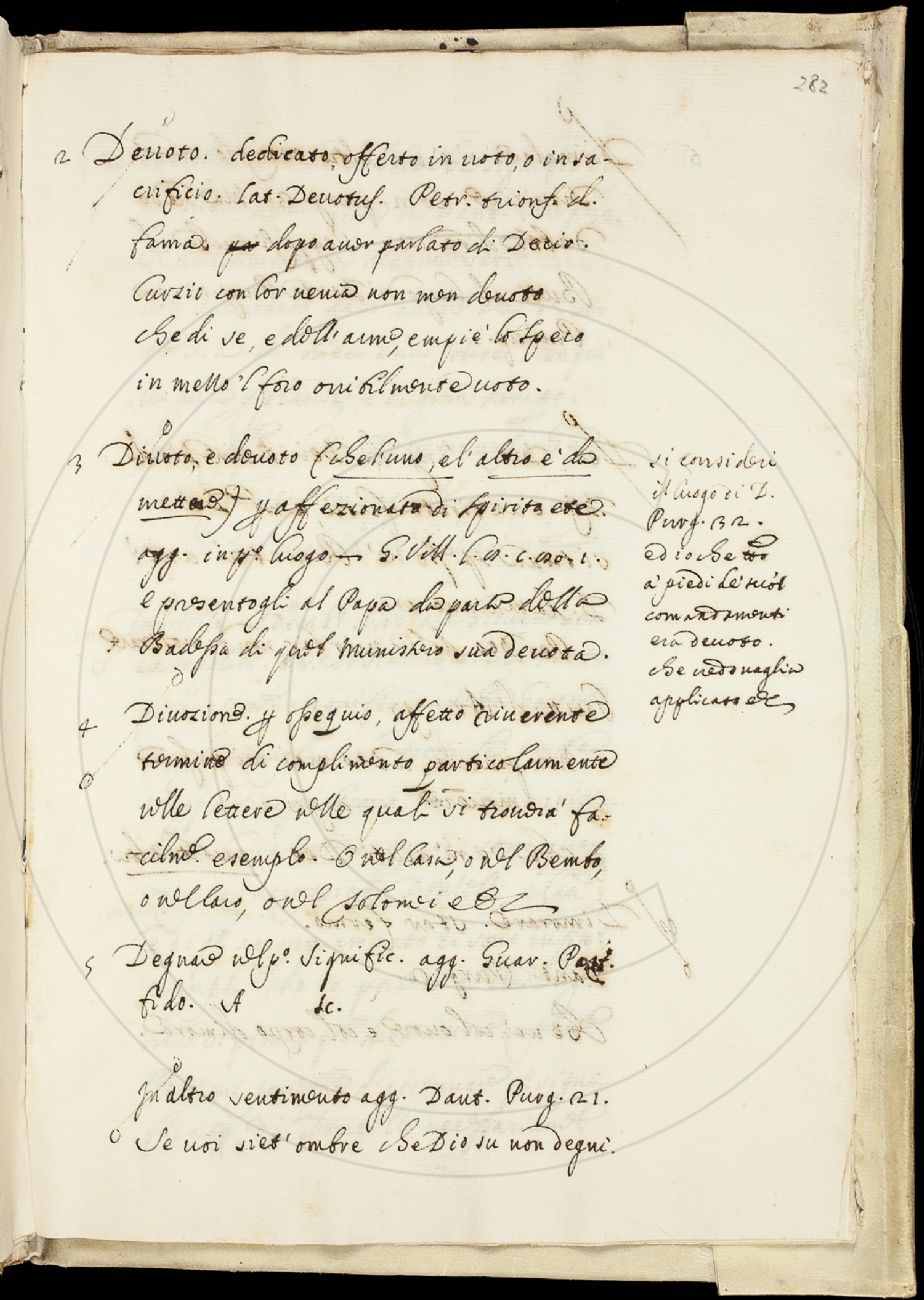 282
2 Deuoto. dedicato, offerto in uoto, o in sa-
crificio. lat. Deuotus. Petr. trionf. d.
fama. dopo auer parlato di Decio.
Curzio con lor uenia non men deuoto
che di se, e dell'arme, empiè lo speco
in mezzo 'l foro orribilmente uoto.
3 Diuoto, e deuoto (che l'uno, e l'altro è da
mettere) p affezionato di spirito etc.
agg. in p.º luogo – G. Vill. l. c. 1.
e presentogli al Papa da parte della
Badessa di quel Munistero sua deuota.
si consideri
il luogo di D.
Purg. 32.
ed io che tto
a' piedi de' suoi
comandamenti
era deuoto.
che credo uaglia
applicato etc
4 Diuozione. p ossequio, affetto riuerente
termine di complimento particolarmente
nelle lettere nelle quali si trouerà fa-
cilme. esemplo. O nel Casa, o nel Bembo,
o nel Caro, o nel Tolomei etc
5 Degnare nel p.º signific. agg. Guar. Past.
fido. A sc.
In altro sentimento agg. Dant. Purg. 21.
Se uoi siet' ombre che Dio su non degni.